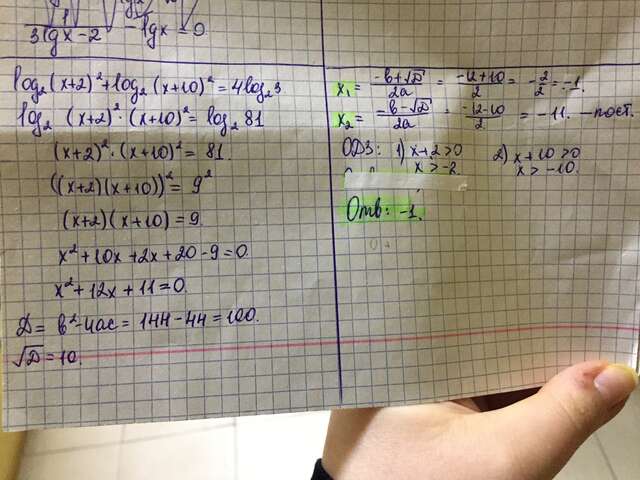 3lgx-2 - lgx = 0.
log₂(x+2)²+log₂(x+10)² = 4log₂3
log₂ (x+2)²·(x+10)² = log₂ 81
(x+2)²·(x+10)² = 81.
((x+2)(x+10))² = 9²
(x+2)(x+10) = 9.
x²+10x+2x+20-9=0.
x²+12x+11=0.
D = b²-4ac = 144-44=100.
√D = 10.
x₁ = -b+√D/2a = -12+10/2 = -2/2 = -1.
x₂ = -b-√D/2a = -12-10/2 = -11. — пост.
ОДЗ: 1) x+2>0 2) x+10>0
x>-2. x>-10.
Отв: -1.